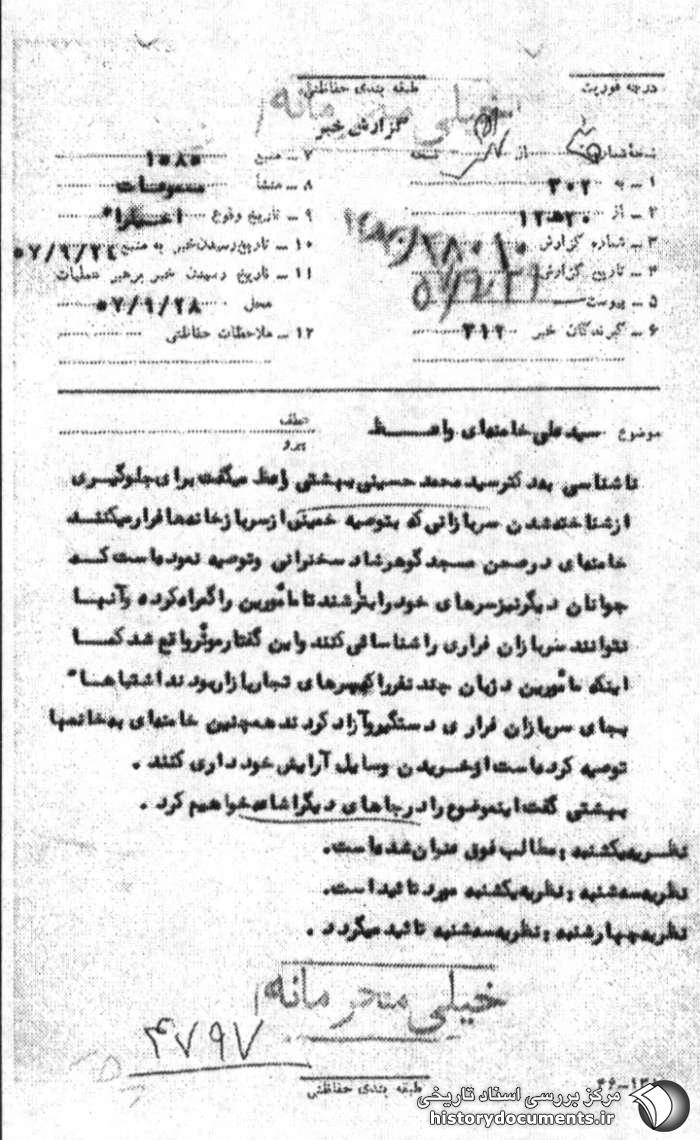 درجه فوریت
طبقه بندی حفاظتی
خیلی محرمانه
گزارش خبر
نسخه شماره از نسخه
۱ ــ به ۳۰۲
۲ ــ از ۱۲ه۲۰
۳ ــ شماره گزارش
۴ ــ تاریخ گزارش
۵ ــ پیوست
۶ ــ گیرندگان خبر ۳۱۲
۷ ــ منبع ۱۰۸۰
۸ ــ منشأ مسموعات
۹ ــ تاریخ وقوع اخیرا"
۱۰ ــ تاریخ رسیدن خبر به منبع ۵۷/۹/۲۴
۱۱ ــ تاریخ رسیدن خبر برهبر عملیات
محل ۵۷/۹/۲۸
۱۲ ــ ملاحظات حفاظتی
موضوع سیدعلی خامنهای واعظ
عطف
پیرو
ناشناسی بهدکترسیدمحمدحسینی بهشتی واعظ میگفت برای جلوگیری
ازشناختهشدن سربازانی که بتوصیه خمینی ازسربازخانهها فرارمیکنند
خامنهای درصحن مسجدگوهرشاد سخنرانی وتوصیه نمودهاست که
جوانان دیگرنیزسرهای خودرابتراشند تامأمورین راگمراهکرده وآنها
نتوانند سربازان فراری راشناسائی کنند واین گفتارموثرواقع شدکما
اینکه مأمورین درنان چندنفرراکهپسرهای تجاربازاربودند اشتباها"
بجای سربازان فراری دستگیروآزادکردند همچنین خامنهای بهخانمها
توصیه کردهاست ازخریدن وسایل آرایش خودداری کنند .
بهشتی گفت اینموضوع رادرجاهای دیگراشاعهخواهیم کرد .
نظریهیکشنبه : مطالب فوق عنوانشدهاست.
نظریهسهشنبه : نظریهیکشنبه مورد تائیداست.
نظریهچهارشنبه : نظریهسهشنبه تائیدمیگردد .
خیلی محرمانه
۴۷۹۷
طبقه بندی حفاظتی
مرکز بررسی اسناد تاریخی
historydocuments.ir